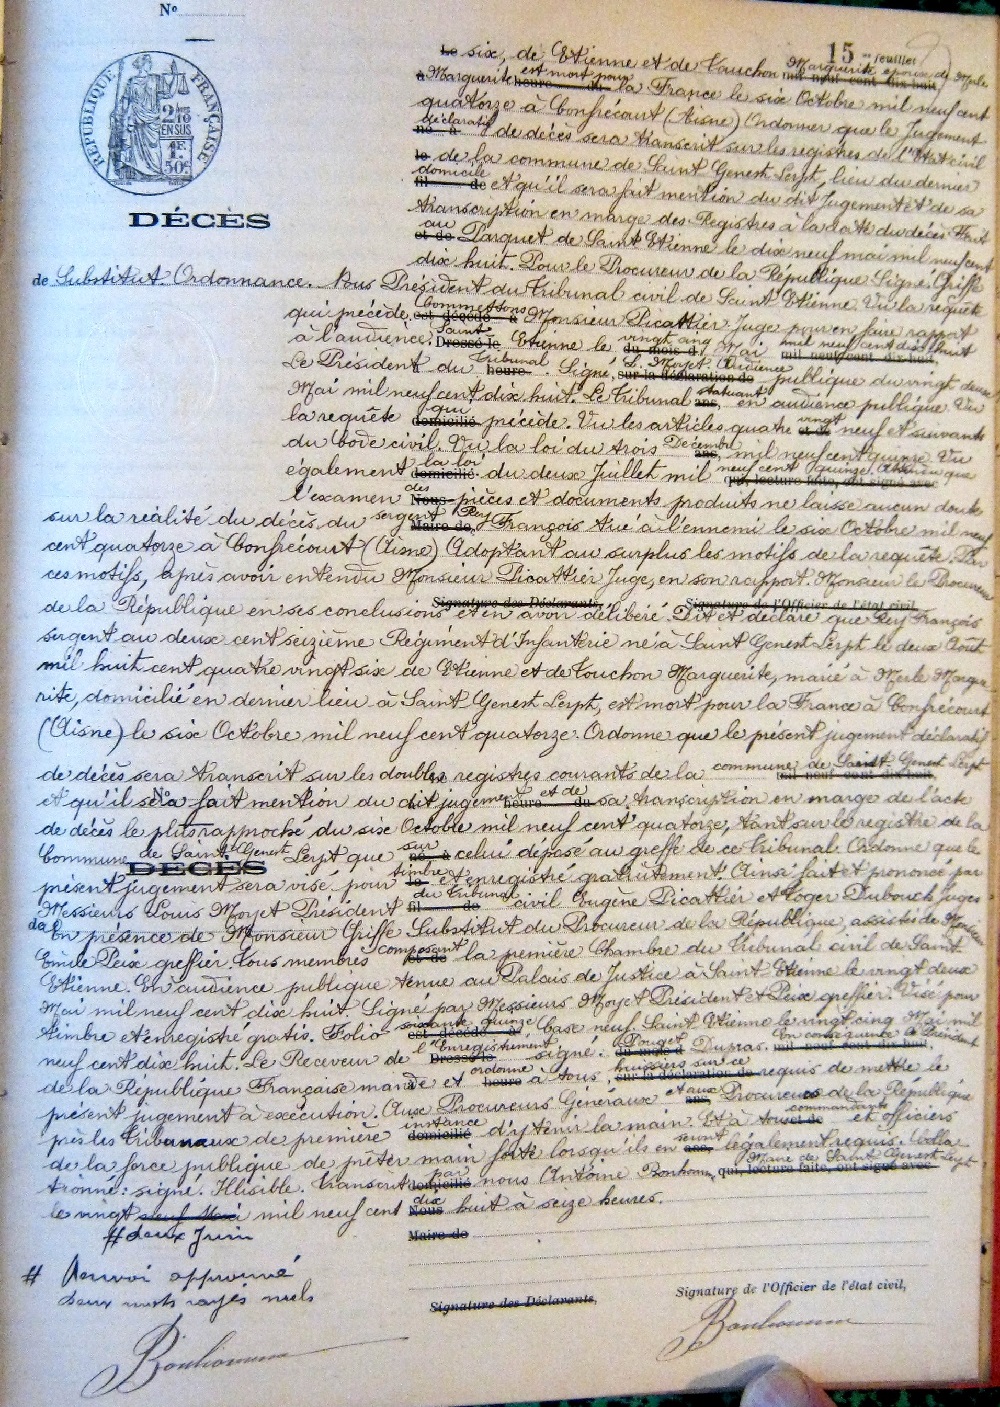 Nº
15 me feuillet
RÉPUBLIQUE FRANÇAISE
2/10 EN SUS
1F. 50c.
DÉCÈS
le six, de Etienne et de Touchon Marguerite, époux de Merle mil neuf cent dix huit
à Marguerite est mort pour heure du la France le six Octobre mil neuf cent
quatorze à Confrécourt (Aisne) Ordonner que le Jugement
déclaratif né à de décès sera transcrit sur les registres de l'Etat civil
le de la commune de Saint Genest Lerpt, lieu du dernier
domicile fil de et qu'il sera fait mention du dit Jugement et de sa
transcription en marge des Registres à la date du décès. Fait
au et de Parquet de Saint Etienne le dix neuf mai mil neuf cent
dix huit. Pour le Procureur de la République Signé, Griffe
de Substitut. Ordonnance. Nous Président du Tribunal civil de Saint Etienne. Vu la requête
qui précède, Commettons est décédé à Monsieur Picattier Juge pour en faire rapport
à l'audience. Saint Dressé le Etienne le vingt cinq du mois d Mai mil neuf cent dix huit mil neuf cent dix huit,
Le Président du Tribunal heure. Signé, L. Moyet. Audience sur la déclaration de publique du vingt deux
Mai mil neuf cent dix huit. Le Tribunal statuant ans, en audience publique. Vu
la requête qui domicilié précède. Vu les articles quatre vingt et de neuf et suivants
du Code civil. Vu la loi du trois Décembre ans, mil neuf cent quinze. Vu
également la loi domicilié. du deux Juillet mil neuf cent quinze. Attendu que qui, lecture faite, ont signé avec
l'examen des Nous pièces et documents produits ne laisse aucun doute
sur la réalité du décès, du sergent Rey Maire de, François tué à l'ennemi le six Octobre mil neuf
cent quatorze à Confrécourt (Aisne) Adoptant au surplus les motifs de la requête. Par
ces motifs, après avoir entendu Monsieur Picattier Juge, en son rapport. Monsieur le Procureur
Signature des Déclarants, Signature de l'Officier de l'état civil,
de la République en ses conclusions et en avoir délibéré. Dit et déclare que Rey François
sergent au deux cent seizième Régiment d'Infanterie né à Saint Genest Lerpt le deux Août
mil huit cent quatre vingt six de Etienne et de Touchon Marguerite, marié à Merle Margue
rite, domicilié en dernier lieu à Saint Genest Lerpt, est mort pour la France à Confrécourt
(Aisne) le six Octobre mil neuf cent quatorze. Ordonne que le présent jugement déclaratif
de décès sera transcrit sur les doubles registres courants de la commune de Saint Genest Lerpt mil neuf cent dix huit,
et qu'il sera Nº fait mention du dit jugement et de heure du sa transcription en marge de l'acte
de décès le plus rapproché du six Octobre mil neuf cent quatorze, tant sur le registre de la
Commune de Saint Genest Lerpt que sur né à celui déposé au greffe de ce Tribunal. Ordonne que le
DÉCÈS
présent jugement sera visé pour timbre le et enregistré gratuitement. Ainsi fait et prononcé par
Messieurs Louis Moyet Président du Tribunal fil de civil Eugène Picattier et Roger Dubouch juges
de En présence de Monsieur Griffe Substitut du Procureur de la République, assistés de Monsieur
Emile Peix greffier. Tous membres composant et de la première Chambre du Tribunal civil de Saint
Etienne. En audience publique tenue au Palais de Justice à Saint Etienne le vingt deux
Mai mil neuf cent dix huit. Signé par Messieurs Moyet Président et Peix greffier. Visé pour
timbre et enregistré gratis. Folio soixante quinze est décédé à Case neuf. Saint Etienne le vingt cinq Mai mil
neuf cent dix huit. Le Receveur de l'Enregistrement Dressé le signé: Pouget du mois d Dupras. En conséquence le Président mil neuf cent dix huit,
de la République Française mande et ordonne heure à tous huissiers sur ce sur la déclaration de requis de mettre le
présent jugement à exécution. Aux Procureurs Généraux et aux ans, Procureurs de la République
près les Tribunaux de première instance domicilié d'y tenir la main. Et à tous commandants et de et officiers
de la force publique de prêter main forte lorsqu'ils en seront ans, légalement requis. Colla
tionné: signé. Illisible. Transcrit par domicilié nous Antoine Bonhomme, Maire de Saint Genest Lerpt qui, lecture faite, ont signé avec
le vingt neuf Mai mil neuf cent dix Nous huit à seize heures.
# deux Juin
Maire de
# Renvoi approuvé
deux mots rayés nuls
Signature des Déclarants,
Signature de l'Officier de l'état civil,
Bonhomme
Bonhomme